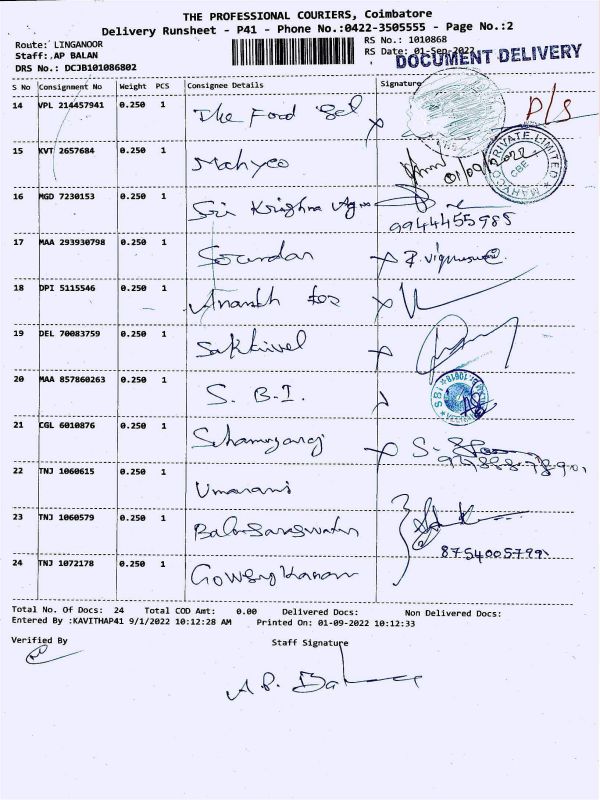 THE PROFESSIONAL COURIERS, Coimbatore
Delivery Runsheet - P41 - Phone No.:0422-3505555 - Page No.:2
Route: LINGANOOR
Staff: AP BALAN
DRS No.: DCJB101086802
RS No.: 1010868
RS Date: 01-Sep-2022
DOCUMENT DELIVERY
S No Consignment No Weight PCS Consignee Details Signature
14 VPL 214457941 0.250 1 The Food
P/S
15 KVT 2657684 0.250 1 Mahyco
01/09/2022
MAHYCO PRIVATE LIMITED
CBE
16 MGD 7230153 0.250 1 Sri Krishna Agro
9944455985
17 MAA 293930798 0.250 1 Soundar
18 DPI 5115546 0.250 1 Ananth
19 DEL 70083759 0.250 1 Sakthivel
20 MAA 857860263 0.250 1 S. B.I.
SBI
21 CGL 6010876 0.250 1
22 TNJ 1060615 0.250 1 Umarani
23 TNJ 1060579 0.250 1
24 TNJ 1072178 0.250 1
Total No. Of Docs: 24 Total COD Amt: 0.00 Delivered Docs: Non Delivered Docs:
Entered By :KAVITHAP41 9/1/2022 10:12:28 AM Printed On: 01-09-2022 10:12:33
Verified By Staff Signature
A.P. Balan